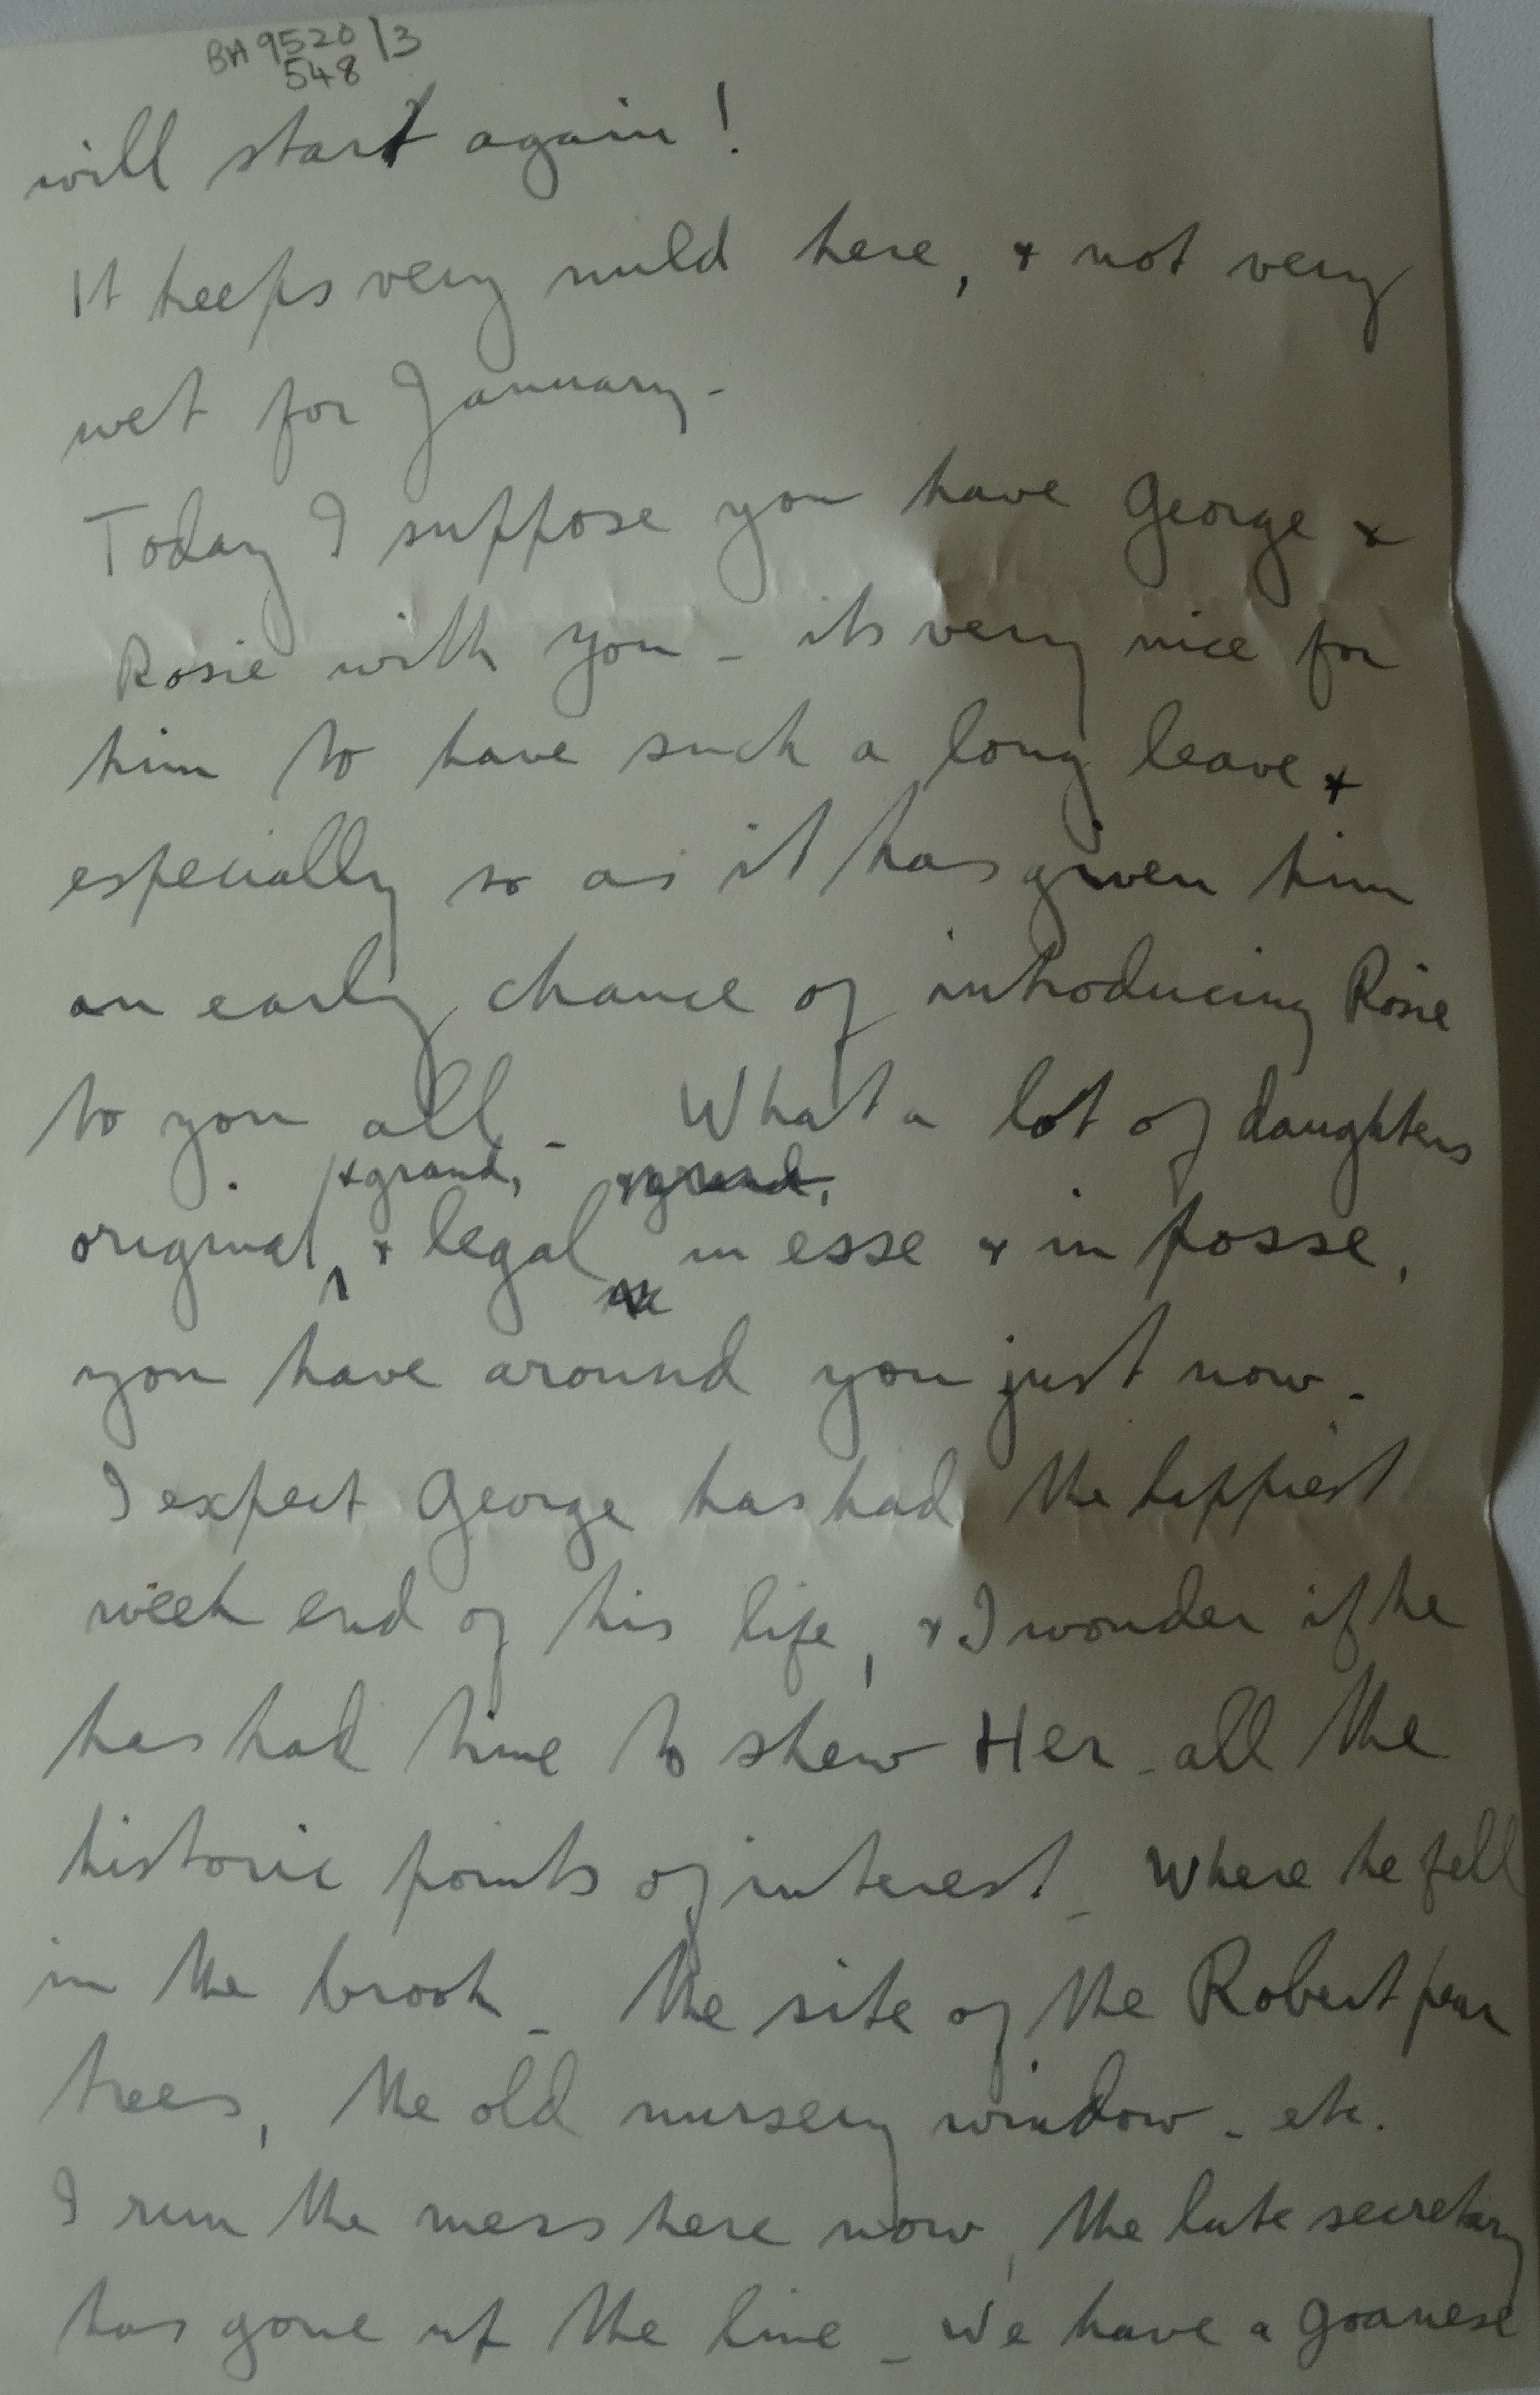 BA 9520/3
548
will start again!
It keeps very mild here, & not very
wet for January -
Today I suppose you have George &
Rosie with you - its very nice for
him to have such a long leave &
especially so as it has given him
an early chance of introducing Rosie
to you all - What a lot of daughters
& grand, & grand,
original, & legal in esse & in posse,
you have around you just now -
I expect George has had the happiest
week end of his life, & I wonder if he
has had time to shew Her - all the
historic points of interest - Where he fell
in the brook - the site of the Robert pear
trees, the old nursery window - etc.
I run the mess here now, the late secretary
has gone up the line - We have a Goanese